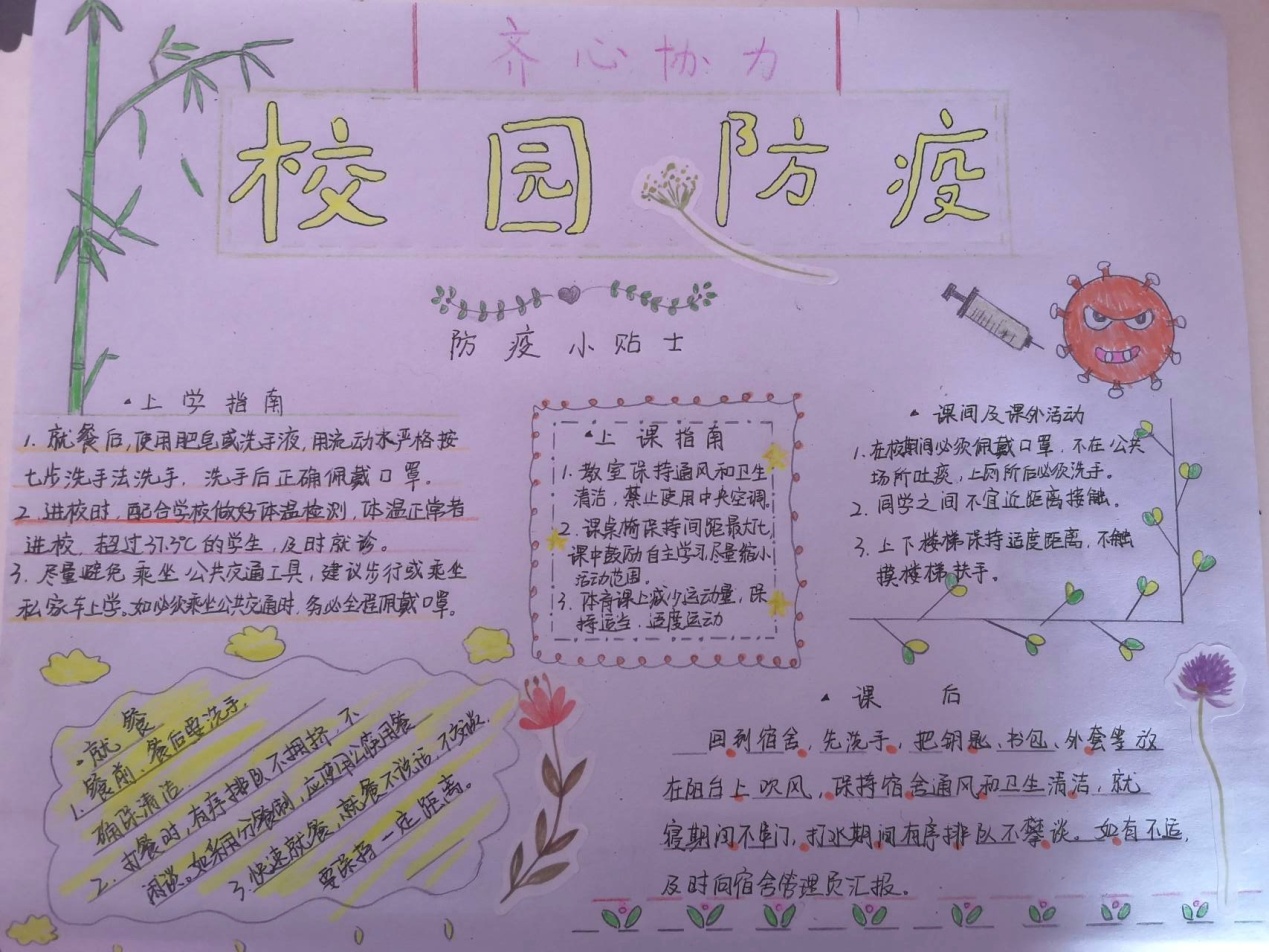 齐心协力
校园防疫
防疫小贴士
上学指南
1. 就餐后,使用肥皂或洗手液,用流动水严格按
七步洗手法洗手,洗手后正确佩戴口罩。
2. 进校时,配合学校做好体温检测,体温正常者
进校,超过37.3℃的学生,及时就诊。
3. 尽量避免乘坐公共交通工具,建议步行或乘坐
私家车上学。如必须乘坐公共交通时,务必全程佩戴口罩。
上课指南
1. 教室保持通风和卫生
清洁,禁止使用中央空调。
2. 课桌椅保持间距最大化,
课中鼓励自主学习尽量缩小
活动范围。
3. 体育课上减少运动量,保
持适当、适度运动
课间及课外活动
1. 在校期间必须佩戴口罩,不在公共
场所吐痰,上厕所后必须洗手。
2. 同学之间不宜近距离接触。
3. 上下楼梯保持适度距离,不触
摸楼梯扶手。
就餐
1. 餐前、餐后要洗手,
确保清洁
2. 打餐时,有序排队不拥挤,不
闲谈。如采用分餐制,应使用公筷用餐
3. 快速就餐,就餐不说话,不交谈,
要保持一定距离。
课后
回到宿舍,先洗手,把钥匙、书包、外套等放
在阳台上吹风,保持宿舍通风和卫生清洁,就
寝期间不串门,打水期间有序排队不攀谈。如有不适,
及时向宿舍管理员汇报。